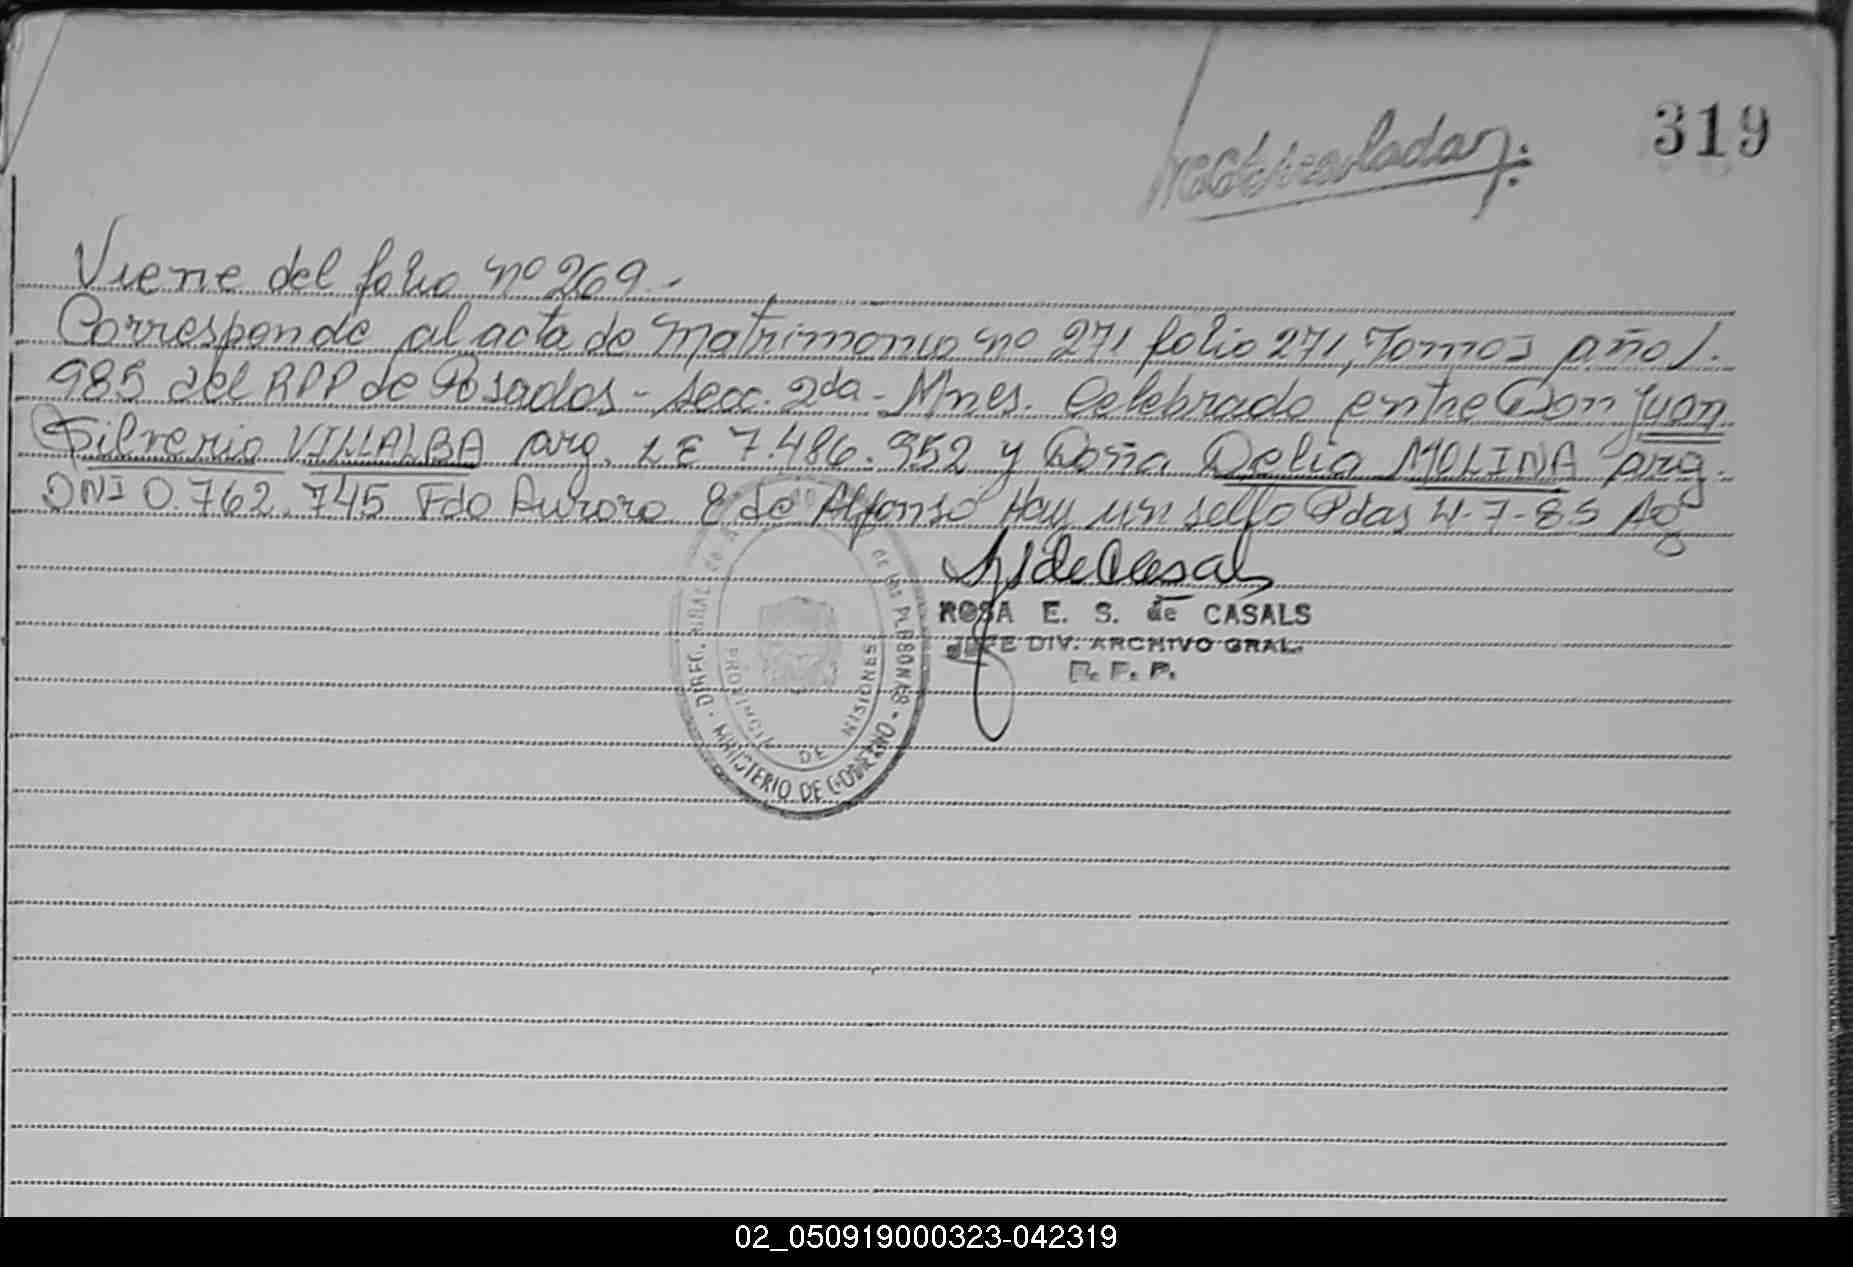 319
Viene del folio nº 269.-
Corresponde al acta de Matrimonio nº 271 folio 271, Tomo año 1.
985 del RPP de Posadas - secc. 2da - Mnes. Celebrado entre Don Juan
Silverio VILLALBA arg. LE 7.486.952 y Doña Delia MOLINA arg.
DNI 0.762.745 Fdo Aurora E de Alfonso Hay un sello Pdas 4-7-85
ROSA E. S. de CASALS
JEFE DIV. ARCHIVO GRAL.
R. P. P.
MINISTERIO DE GOBIERNO
PROVINCIA DE MISIONES
02_050919000323-042319